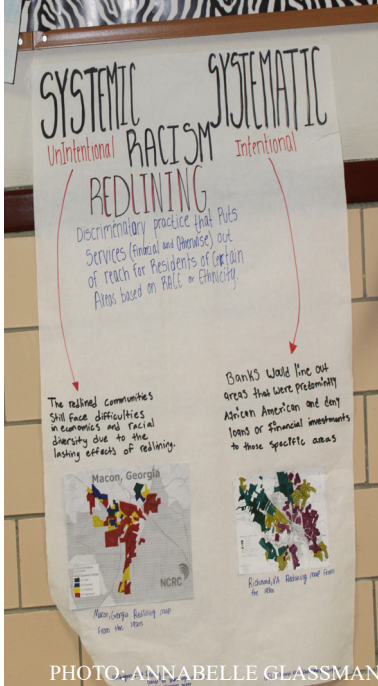 SYSTEMIC SYSTEMATIC
UnIntentional RACISM Intentional
REDLINING
Discrimenatory practice that Puts
Services (financial and Otherwise) out
of reach for Residents of Certain
Areas based on RACE or Ethnicity.
The redlined communities
Still Face difficulties
in economics and racial
diversity due to the
lasting effects of redlining.
Banks would line out
areas that were predomintly
African American and deny
loans or financial investments
to those specific areas
Macon, Georgia
NCRC
Macon, Georgia Redlining map
From the
Richmond, VA Redlining map From
the
PHOTO: ANNABELLE GLASSMAN